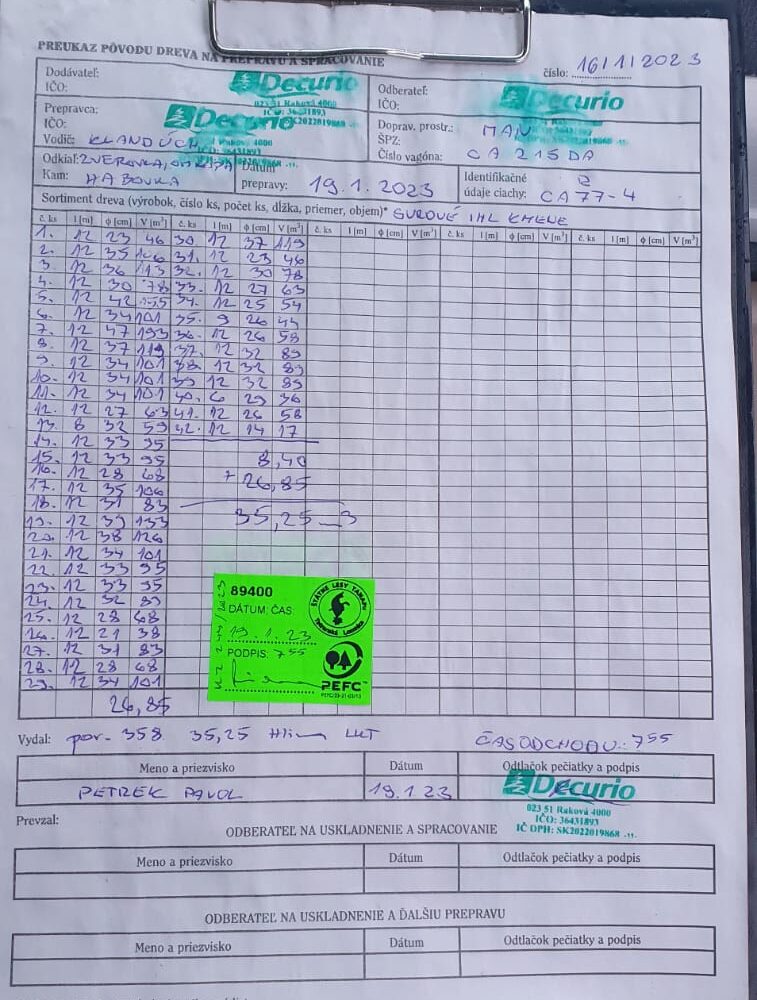 PREUKAZ PÔVODU DREVA NA PREPRAVU A SPRACOVANIE
číslo: 16/1/2023
Dodávateľ:
IČO:
Decurio
023 51 Raková 4000
IČO: 36431893
SK2022019868
Odberateľ:
IČO:
Decurio
Prepravca:
IČO:
Decurio
Raková 4000
Vodič: KLANDÚCH
Doprav. prostr.: MAN
ŠPZ:
Číslo vagóna: CA 215DA
Odkiaľ: ZVEROVKA,
Kam: HABOVKA
Dátum
prepravy: 19.1.2023
Identifikačné
údaje ciachy: CA77-4
Sortiment dreva (výrobok, číslo ks, počet ks, dĺžka, priemer, objem)* SUROVÉ IHL KMENE
č. ks l [m] ϕ [cm] V [m³] č. ks l [m] ϕ [cm] V [m³] č. ks l [m] ϕ [cm] V [m³] č. ks l [m] ϕ [cm] V [m³] č. ks l [m] ϕ [cm] V [m³]
1. 12 23 46 30 12 37 119
2. 12 35 106 31. 12 23 46
3. 12 36 113 32. 12 30 78
4. 12 30 78 33. 12 27 63
5. 12 42 155 34. 12 25 54
6. 12 34 101 35. 9 26 44
7. 12 47 193 36. 12 26 58
8. 12 37 119 37. 12 32 89
9. 12 34 101 38 12 32 89
10. 12 34 101 39 12 32 89
11. 12 34 101 40. 6 29 36
12. 12 27 63 41. 12 26 58
13. 8 32 59 42. 12 14 17
14. 12 33 95
15. 12 33 95 8,40
16. 12 28 68
17. 12 35 106 + 26,85
18. 12 31 83
19. 12 39 133 35,25
20. 12 38 126
21. 12 34 101
22. 12 33 95
23. 12 33 95
24. 12 32 89
25. 12 28 68
26. 12 21 38
27. 12 31 83
28. 12 28 68
29. 12 34 101
26,85
89400
DÁTUM: ČAS:
19.1.23
PODPIS: 7 55
ŠTÁTNE LESY TANAPU
Tatranská Lomnica
PEFC™
Vydal: por. 358 35,25 LKT
ČAS ODCHODU: 7 55
Meno a priezvisko Dátum Odtlačok pečiatky a podpis
PETREK PAVOL 19.1 23
Decurio
023 51 Raková 4000
IČO: 36431893
IČ DPH: SK2022019868 .11.
Prevzal:
ODBERATEĽ NA USKLADNENIE A SPRACOVANIE
Meno a priezvisko Dátum Odtlačok pečiatky a podpis
ODBERATEĽ NA USKLADNENIE A ĎALŠIU PREPRAVU
Meno a priezvisko Dátum Odtlačok pečiatky a podpis